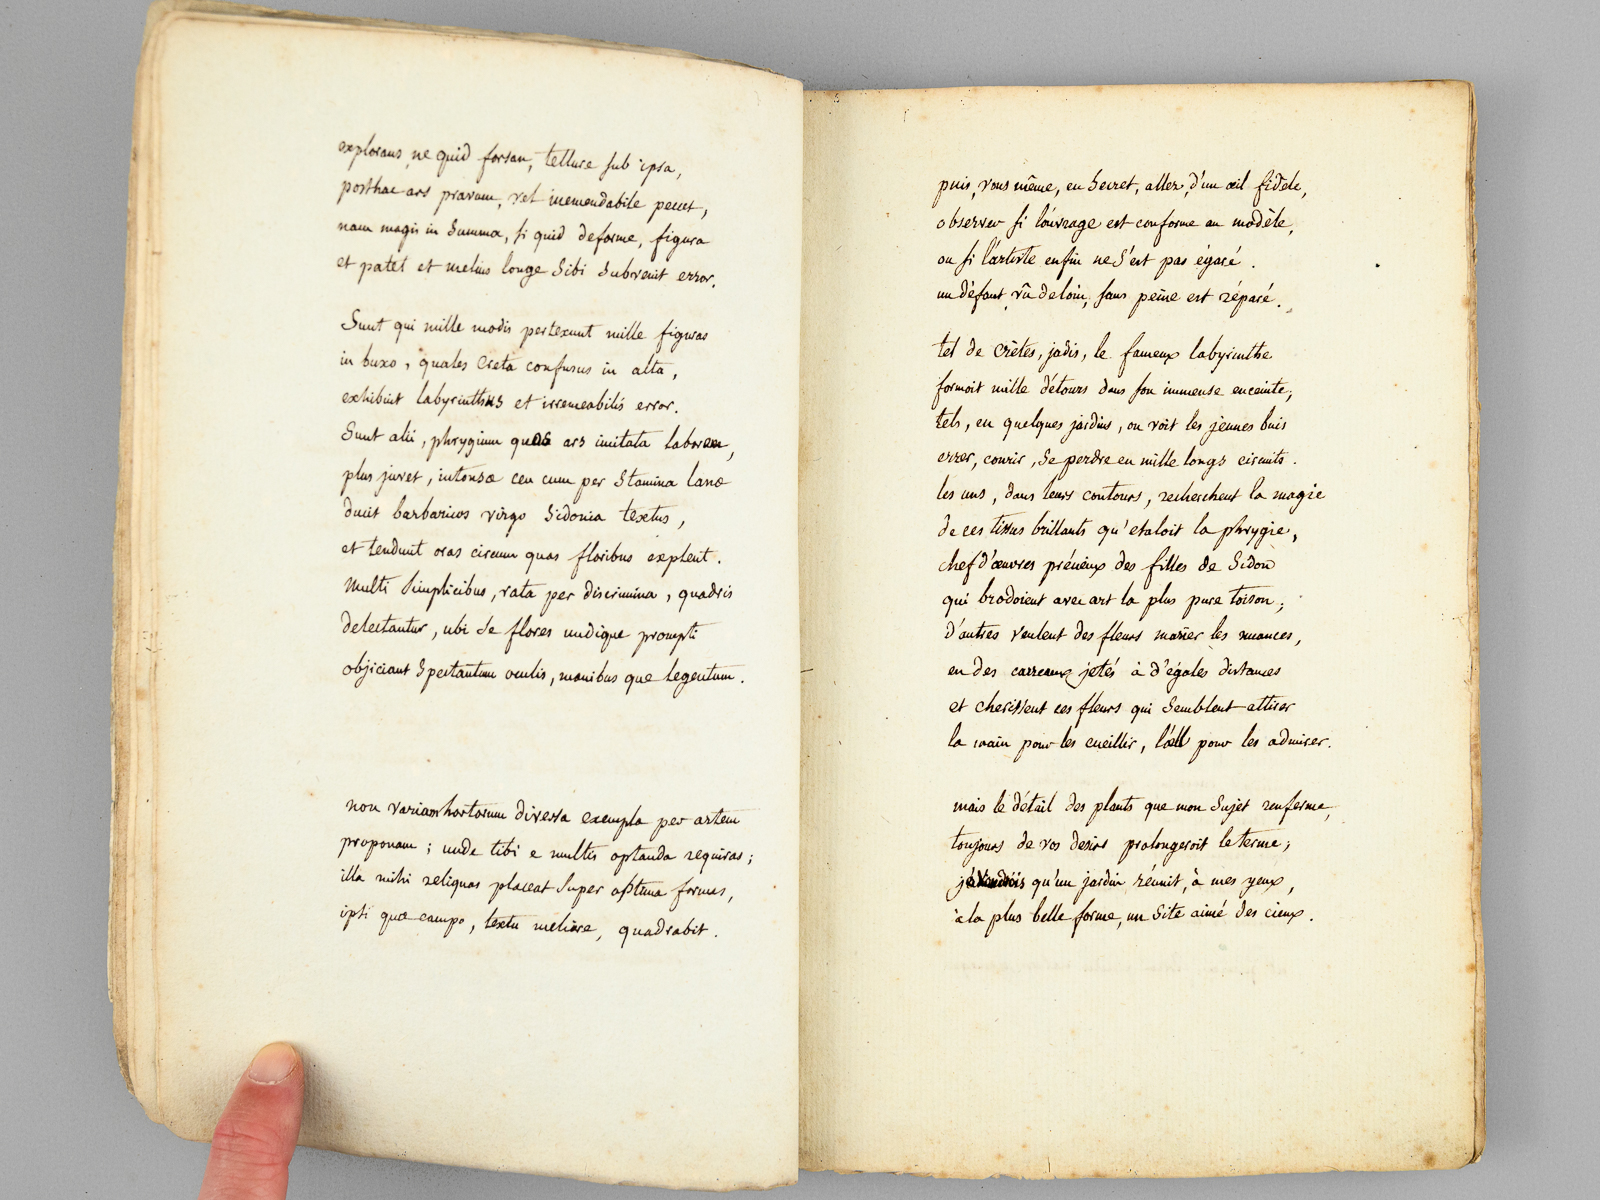 explorans, ne quid forsan, tellure sub ipsa,
posthac ars pravum, vel inemendabile peccet,
nam magis in summa, si quid deforme, figura
et patet et melius longe sibi subvenit error.
Sunt qui mille modis pertexunt mille figuras
in buxo, quales Creta confusus in alta,
exhibuit labyrinthus et irremeabilis error.
Sunt alii, phrygium quos ars imitata laborem,
plus juvet, intonsæ ceu cum per stamina lanæ
ducit barbaricos virgo Sidonia textus,
et tendunt oras circum quas floribus explent.
Multi simplicibus, rata per discrimina, quadris
delectantur, ubi se flores undique prompti
objiciant spectantum oculis, manibus que legentum.
non variam hortorum diversa exempla per artem
proponam; unde tibi e multis optanda requiras;
illa mihi reliquas placeat super optima formas,
ipsi quæ campo, textu meliore, quadrabit.
puis, vous même, en secret, allez, d'un œil fidele,
observer si l'ouvrage est conforme au modèle,
ou si l'artiste enfin ne s'est pas égaré.
un défaut vû de loin, sans peine est réparé.
tel de crètes, jadis, le fameux labyrinthe
formoit mille détours dans son immense enceinte;
tels, en quelques jardins, on voit les jeunes buis
errer, courir, se perdre en mille longs circuits.
les uns, dans leurs contours, recherchent la magie
de ces tissus brillants qu'etaloit la phrygie,
chef d'œuvres précieux des filles de Sidon
qui brodoient avec art la plus pure toison;
d'autres veulent des fleurs marier les nuances,
en des carreaux jetés à d'égales distances
et cherissent ces fleurs qui semblent attirer
la main pour les cueillir, l'œil pour les admirer.
mais le détail des plants que mon sujet renferme,
toujours de vos desirs prolongeroit le terme;
qu'un jardin réunit, à mes yeux,
à la plus belle forme, un site aimé des cieux.